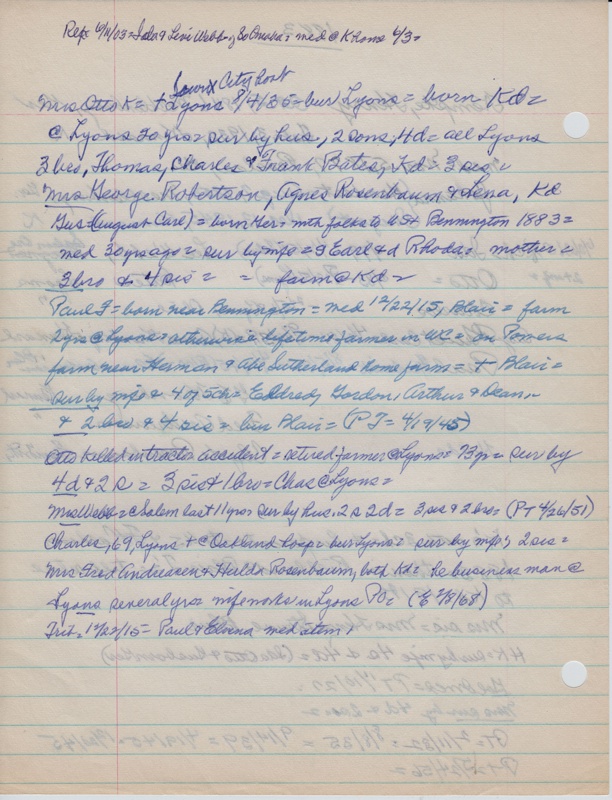 Rep: 6/11/03= Ida & Levi Webb= So Omaha= med @ K home 6/3=
Sioux City hosp
Mrs Otto K= + Lyons 8/4/35= bur Lyons= born Kd=
@ Lyons 20 yrs= sur by hus, 2 sons, 4d= all Lyons
3 bro, Thomas, Charles & Frank Bates, Kd= 3 sis=
Mrs George Robertson, Agnes Rosenbaum & Lena, Kd
Gus= (August Carl)= born Ger= mth folks to US & Bennington 1883=
med 30 yrs ago= sur by mfe= s Earl & d Rhoda= mother=
3 bro & 4 sis = = farm @ Kd=
Paul F= born near Bennington= med 12/22/15, Blair= farm
yrs @ Lyons= otherwise lifetime farmer in WC= on Powers
farm near Herman & Abe Sutherland home farm= + Blair=
sur by mfe & 4 of 5 ch= Gordon, Arthur & Dean,
& 2 bro & 4 sis= bur Blair= (PT= 4/19/45)
Otto killed in tractor accident= retired farmer @ Lyons= 73 yr= sur by
4d & 2 s= 3 sis & 1 bro= Chas @ Lyons=
Mrs Webb= @ Salem last 11 yrs= sur by hus. 2s 2d= 3 sis & 2 bro= (PT 4/26/51)
Charles, 69, Lyons + @ Oakland hosp= bur Lyons= sur by mfe, 2 sis=
Mrs Fred Andreasen & Hulda Rosenbaum, both Kd= he business man @
Lyons several yrs= mfe works in Lyons PO= (E 2/8/68)
Trib= 12/22/15= Paul & Elvena med item